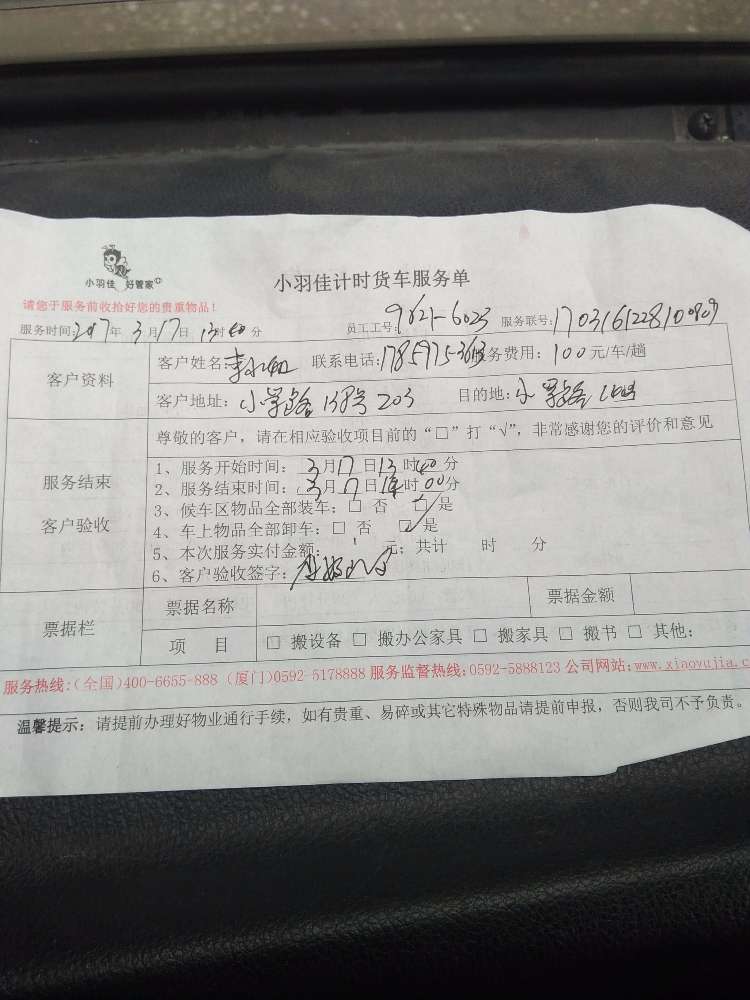 小羽佳 好管家
小羽佳计时货车服务单
请您于服务前收拾好您的贵重物品！
服务时间：2017年 3月17日 13时00分 员工工号：9621-6023 服务联号：1703161228100909
客户资料
客户姓名： 联系电话： 服务费用：100元/车/趟
客户地址：小学路138号203 目的地：小学路
尊敬的客户，请在相应验收项目前的“□”打“√”，非常感谢您的评价和意见
服务结束
客户验收
1、服务开始时间：3月17日13时00分
2、服务结束时间：3月17日 时00分
3、候车区物品全部装车：□ 否 □ 是
4、车上物品全部卸车：□ 否 ☑ 是
5、本次服务实付金额： 元；共计 时 分
6、客户验收签字：
票据栏
票据名称 票据金额
项 目 □ 搬设备 □ 搬办公家具 □ 搬家具 □ 搬书 □ 其他：
服务热线：（全国）400-6655-888（厦门）0592-5178888 服务监督热线：0592-5888123 公司网站：www.xiaoyujia.c
温馨提示：请提前办理好物业通行手续，如有贵重、易碎或其它特殊物品请提前申报，否则我司不予负责。